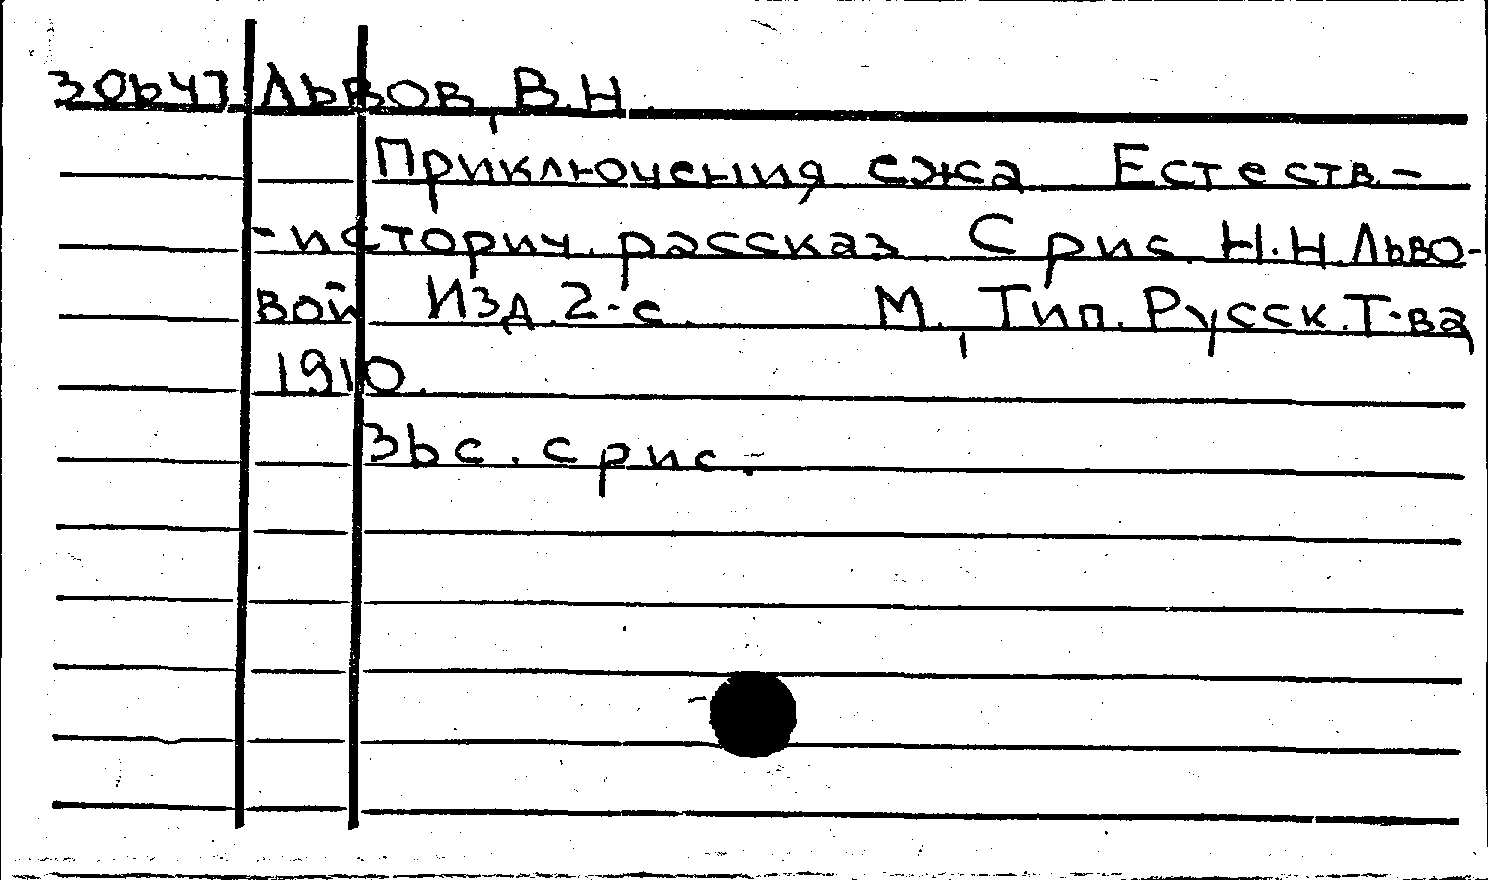 Львов, В.Н.
Приключения ежа Естеств.-
-историч. рассказ. С рис. Н.Н. Льво-
вой Изд. 2-е. М., Тип. Русск. Т-ва,
1910.
36 с. с рис.